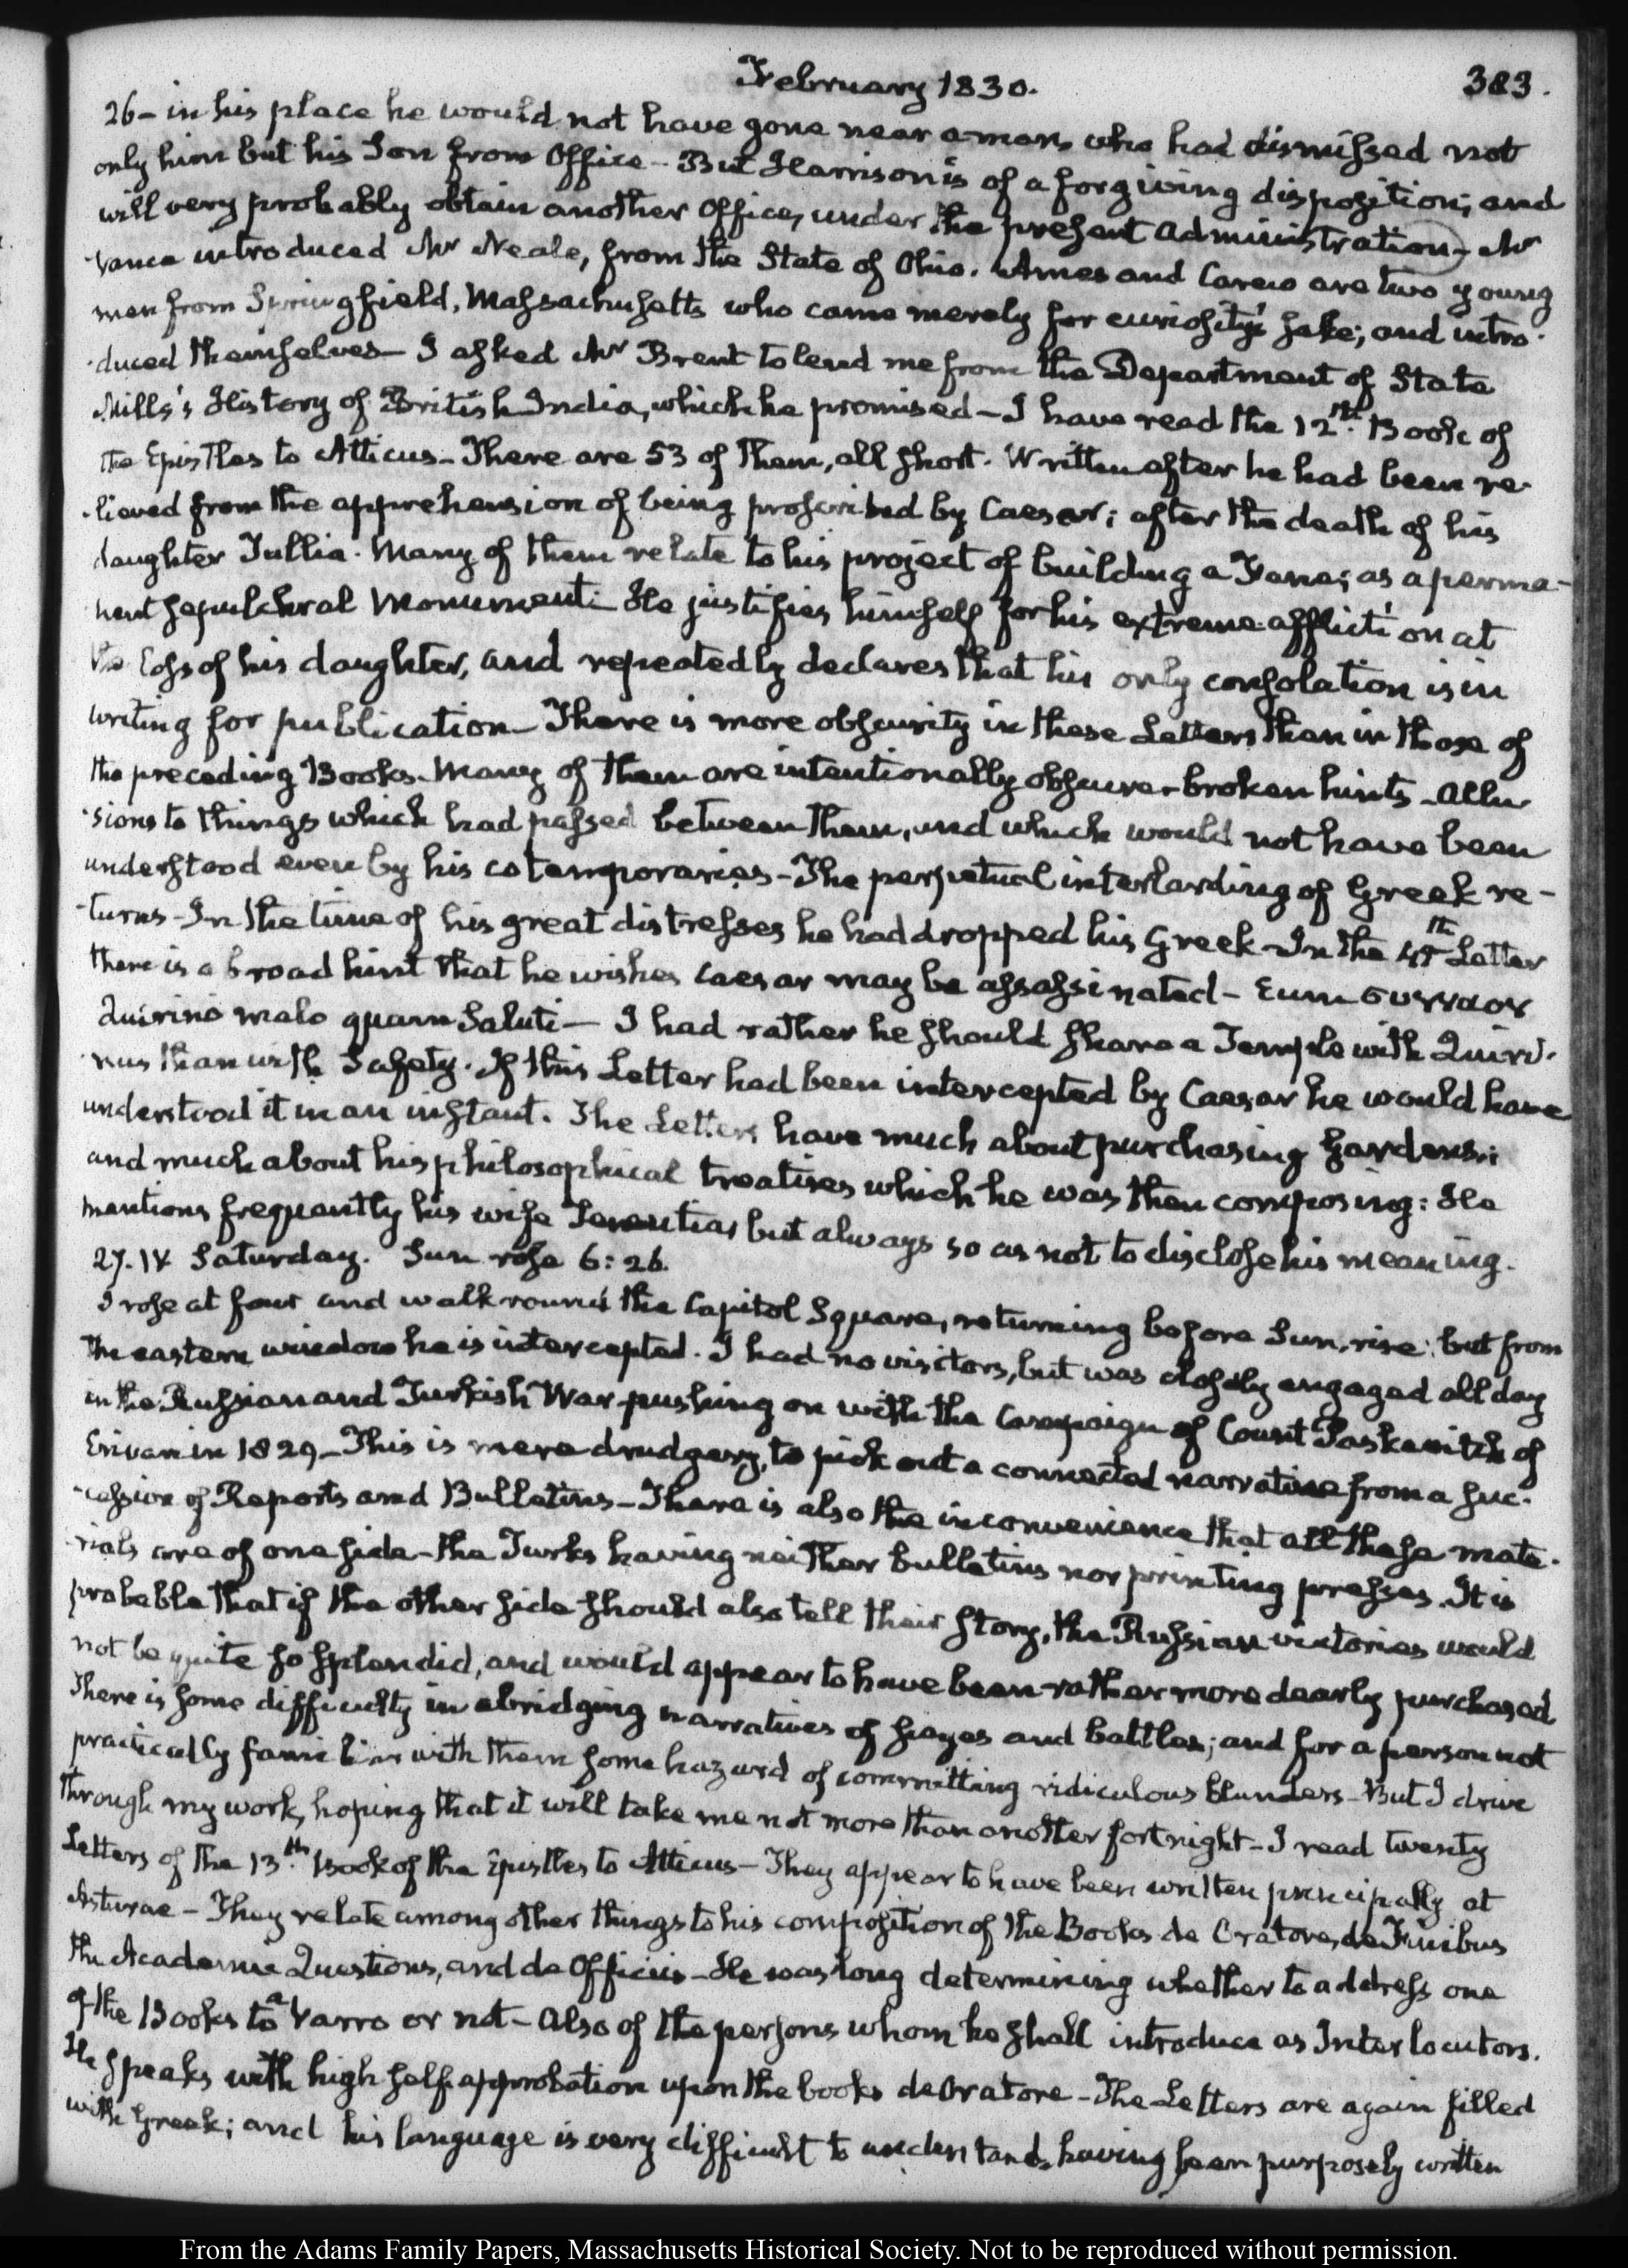 February 1830.
383.
26 – in his place he would not have gone near a man who had dismissed not
only him but his Son from Office – But Harrison is of a forgiving disposition; and
will very probably obtain another Office, under the present Administration – Mr
Vance introduced Mr Neale, from the State of Ohio. Ames and Carew are two young
men from Springfield, Massachusetts who came merely for curiosity's sake; and intro-
duced themselves – I asked Mr Brent to lend me from the Department of State
Mills's History of British India, which he promised – I have read the 12th. Book of
the Epistles to Atticus – There are 53 of them, all short. Written after he had been re-
lieved from the apprehension of being proscribed by Caesar; after the death of his
daughter Tullia. Many of them relate to his project of building a Fane; as a perma-
nent sepulchral Monument – He justifies himself for his extreme affliction at
the loss of his daughter, and repeatedly declares that his only consolation is in
writing for publication – There is more obscurity in these Letters than in those of
the preceding Books – Many of them are intentionally obscure – broken hints – allu-
sions to things which had passed between them, and which would not have been
understood even by his cotemporaries – The perpetual interlarding of Greek re-
turns – In the time of his great distresses he had dropped his Greek – In the 45th Letter
there is a broad hint that he wishes Caesar may be assassinated – Eum συνναον
Quirino malo quam Saluti – I had rather he should share a Temple with Quiri-
nus than with Safety. If this Letter had been intercepted by Caesar he would have
understood it in an instant. The Letters have much about purchasing Gardens;
and much about his philosophical treatises which he was then composing: He
mentions frequently his wife Terentia, but always so as not to disclose his meaning.
27. IV. Saturday. Sun rose 6:26.
I rose at four and walk round the Capitol Square, returning before Sun-rise; but from
the eastern window he is intercepted. I had no visitors, but was closely engaged all day
in the Russian and Turkish War – pushing on with the Campaign of Count Paskevitch of
Erivan in 1829 – This is mere drudgery, to pick out a connected narrative from a suc-
cession of Reports and Bulletins – There is also the inconvenience that all these mate-
rials are of one side – the Turks having neither bulletins nor printing presses. It is
probable that if the other side should also tell their story, the Russian victories would
not be quite so splendid, and would appear to have been rather more dearly purchased
There is some difficulty in abridging narratives of sieges and battles; and for a person not
practically familiar with them some hazard of committing ridiculous blunders – But I drive
through my work, hoping that it will take me not more than another fortnight – I read twenty
Letters of the 13th. Book of the Epistles to Atticus – They appear to have been written principally at
Asturae – They relate among other things to his composition of the Books de Oratore, de Finibus
the Academic Questions, and de Officiis – He was long determining whether to address one
of the Books to Varro or not – Also of the persons whom he shall introduce as Interlocutors.
He speaks with high self approbation upon the books de Oratore – The Letters are again filled
with Greek; and his language is very difficult to understand, having been purposely written
From the Adams Family Papers, Massachusetts Historical Society. Not to be reproduced without permission.